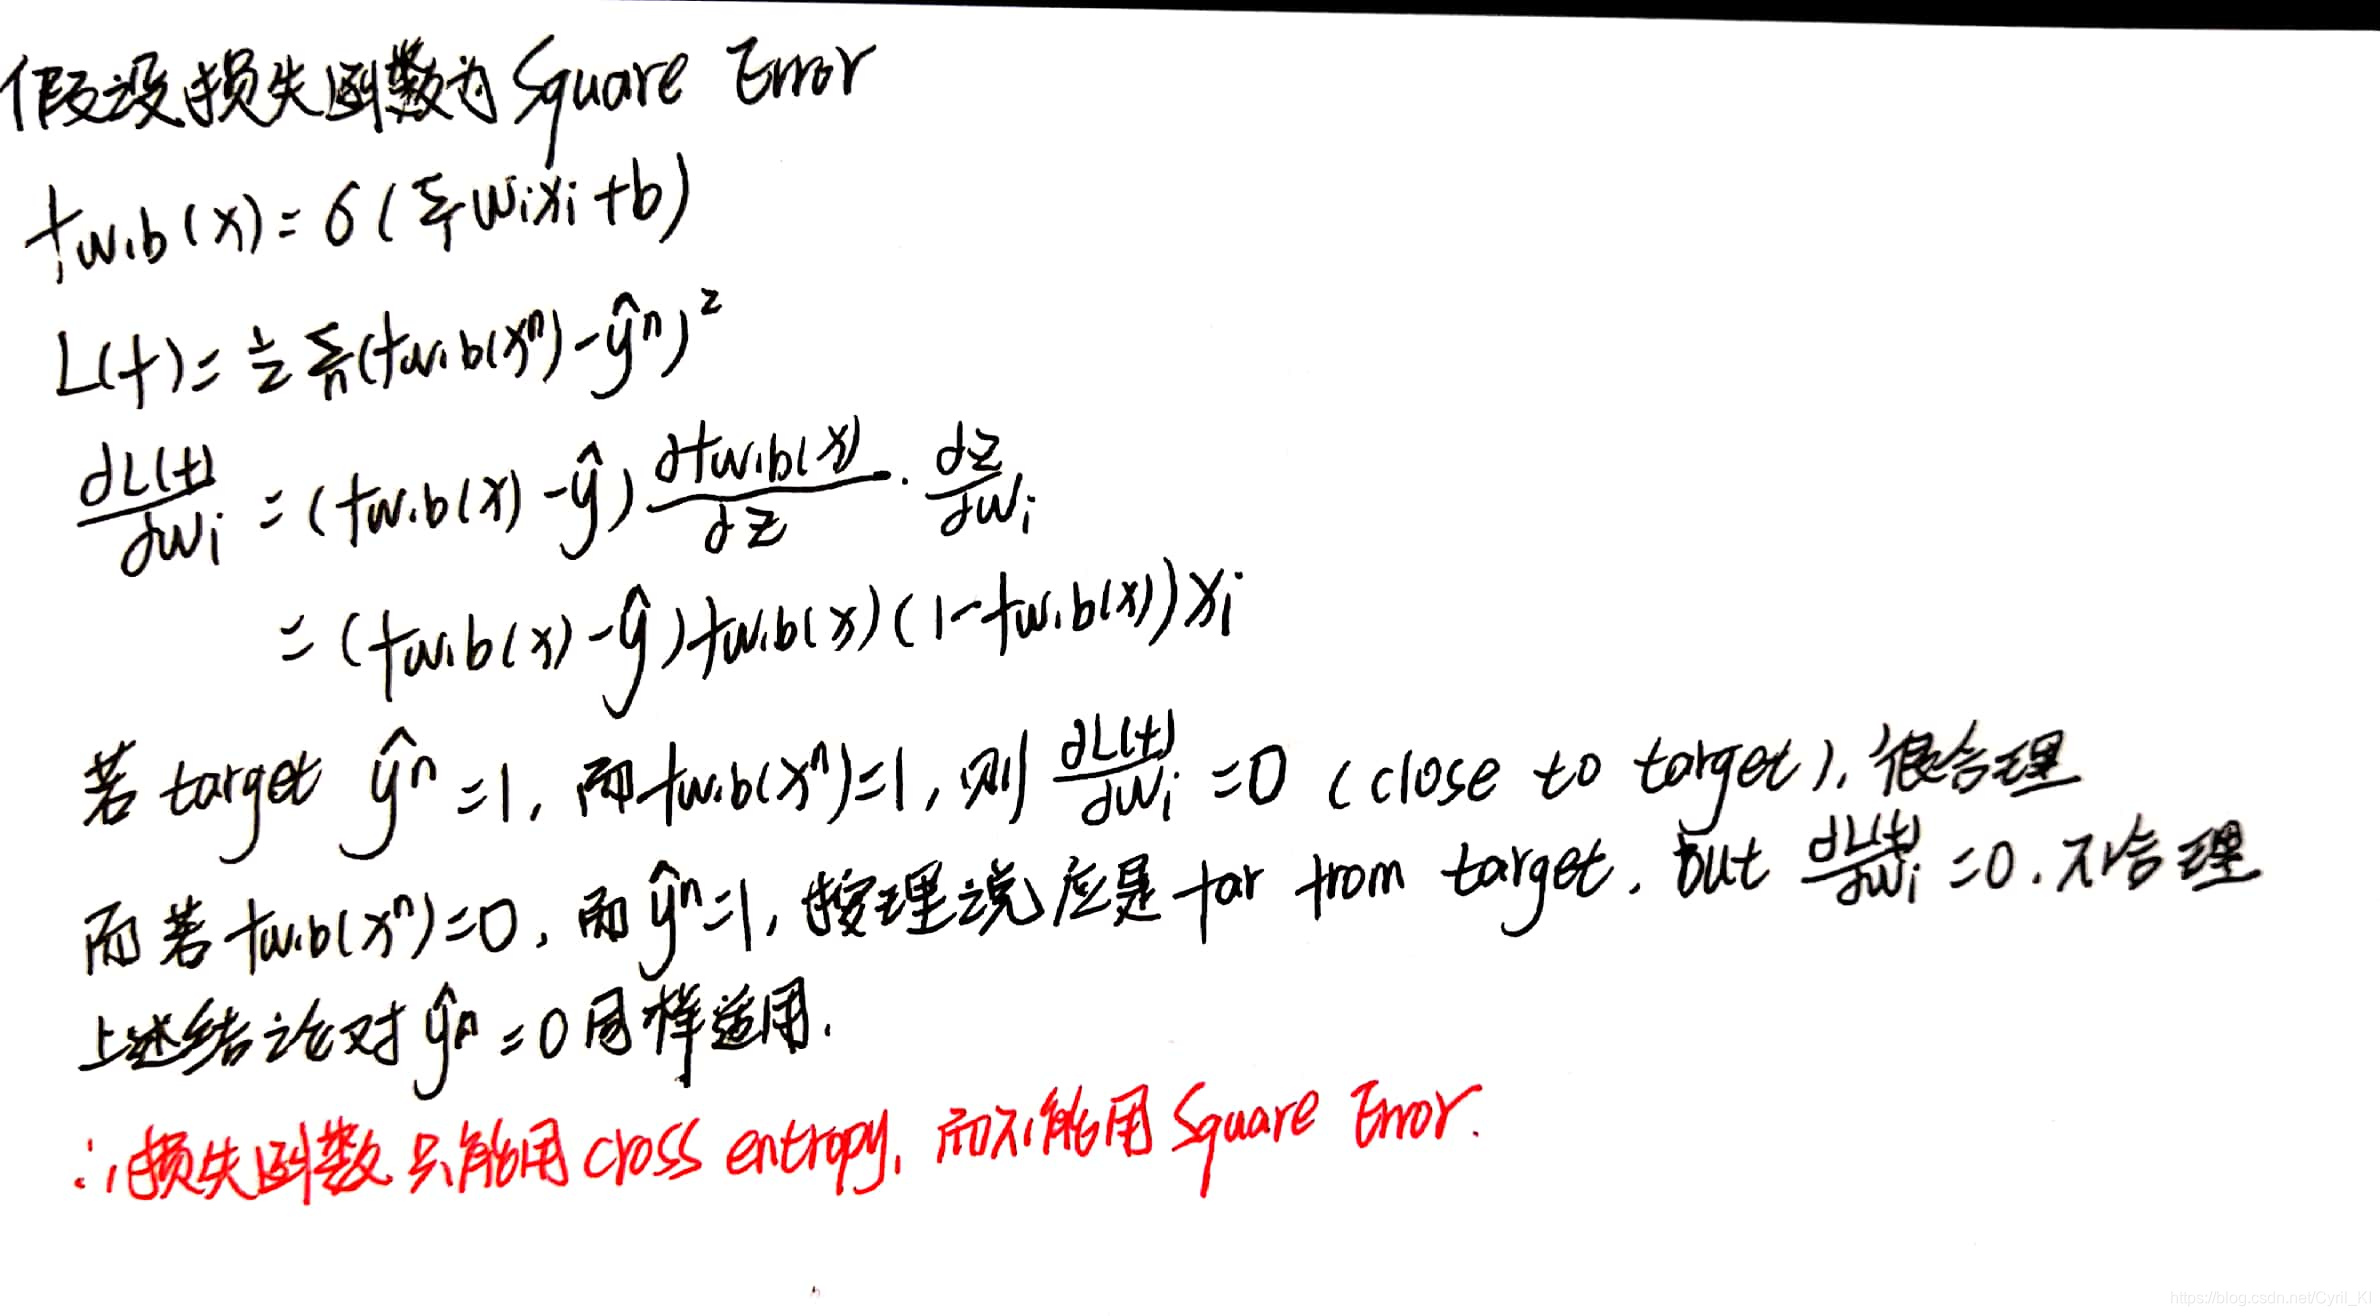 假设损失函数为Square Error
f_{w,b}(x) = σ(Σ_i w_i x_i + b)
L(f) = 1/2 Σ_n (f_{w,b}(x^n) - ŷ^n)^2
∂L(f)/∂w_i = (f_{w,b}(x) - ŷ) ∂f_{w,b}(x)/∂z · ∂z/∂w_i
= (f_{w,b}(x) - ŷ) f_{w,b}(x) (1 - f_{w,b}(x)) x_i
若target ŷ^n = 1, 而f_{w,b}(x^n) = 1, 则 ∂L(f)/∂w_i = 0 (close to target), 很合理
而若f_{w,b}(x^n) = 0, 而ŷ^n = 1, 按理说应是far from target, but ∂L(f)/∂w_i = 0. 不合理
上述结论对ŷ^n = 0同样适用.
∴损失函数只能用cross entropy, 而不能用Square Error.
https://blog.csdn.net/Cyril_KI